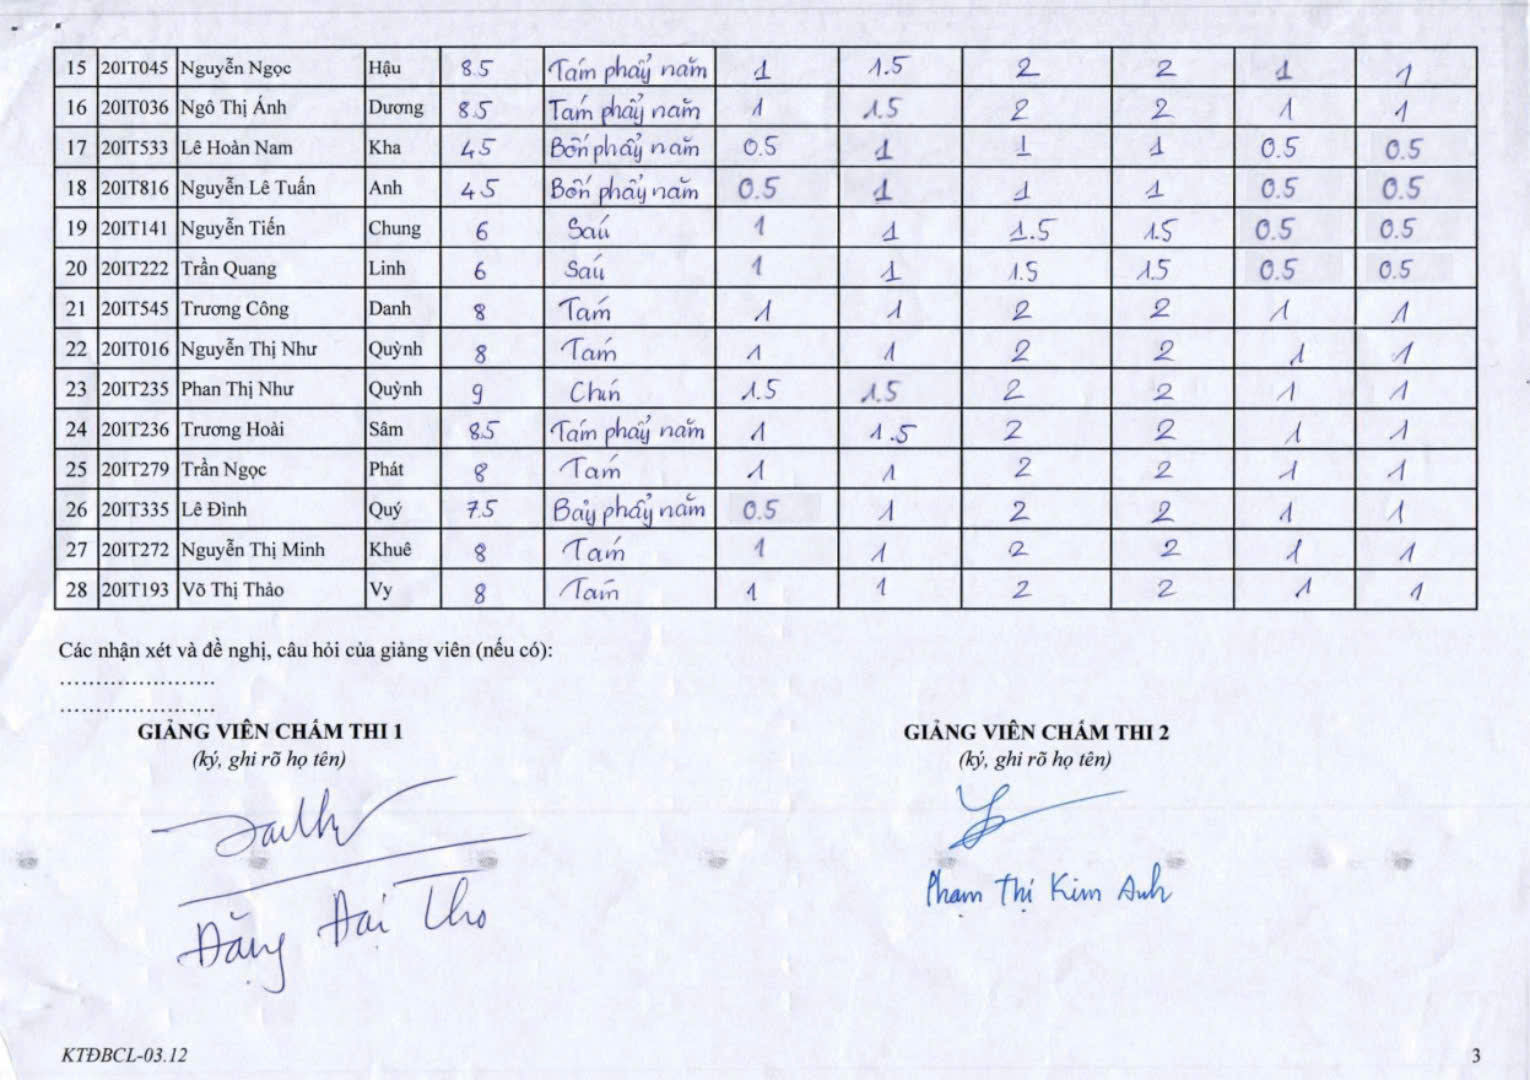 15 20IT045 Nguyễn Ngọc Hậu 8.5 Tám phẩy năm 1 1.5 2 2 1 1
16 20IT036 Ngô Thị Ánh Dương 8.5 Tám phẩy năm 1 1.5 2 2 1 1
17 20IT533 Lê Hoàn Nam Kha 4.5 Bốn phẩy năm 0.5 1 1 1 0.5 0.5
18 20IT816 Nguyễn Lê Tuấn Anh 4.5 Bốn phẩy năm 0.5 1 1 1 0.5 0.5
19 20IT141 Nguyễn Tiến Chung 6 Sáu 1 1 1.5 1.5 0.5 0.5
20 20IT222 Trần Quang Linh 6 Sáu 1 1 1.5 1.5 0.5 0.5
21 20IT545 Trương Công Danh 8 Tám 1 1 2 2 1 1
22 20IT016 Nguyễn Thị Như Quỳnh 8 Tám 1 1 2 2 1 1
23 20IT235 Phan Thị Như Quỳnh 9 Chín 1.5 1.5 2 2 1 1
24 20IT236 Trương Hoài Sâm 8.5 Tám phẩy năm 1 1.5 2 2 1 1
25 20IT279 Trần Ngọc Phát 8 Tám 1 1 2 2 1 1
26 20IT335 Lê Đình Quý 7.5 Bảy phẩy năm 0.5 1 2 2 1 1
27 20IT272 Nguyễn Thị Minh Khuê 8 Tám 1 1 2 2 1 1
28 20IT193 Võ Thị Thảo Vy 8 Tám 1 1 2 2 1 1
Các nhận xét và đề nghị, câu hỏi của giảng viên (nếu có):
........................
........................
GIẢNG VIÊN CHẤM THI 1 GIẢNG VIÊN CHẤM THI 2
(ký, ghi rõ họ tên) (ký, ghi rõ họ tên)
Phạm Thị Kim Anh
Đặng Đại Thọ
KTĐBCL-03.12 3